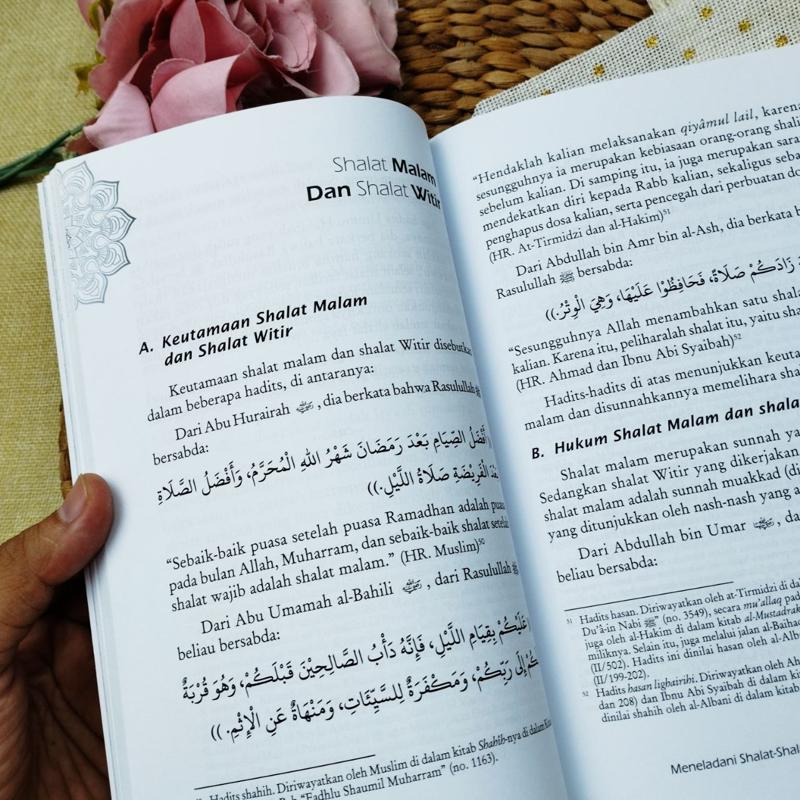 Shalat Malam
Dan Shalat Witir
A. Keutamaan Shalat Malam
dan Shalat Witir
Keutamaan shalat malam dan shalat Witir disebutkan
dalam beberapa hadits, di antaranya:
Dari Abu Hurairah , dia berkata bahwa Rasulullah ﷺ
bersabda:
أَفْضَلُ الصِّيَامِ بَعْدَ رَمَضَانَ شَهْرُ اللهِ الْمُحَرَّمُ، وَأَفْضَلُ الصَّلَاةِ
بَعْدَ الْفَرِيْضَةِ صَلَاةُ اللَّيْلِ.))
“Sebaik-baik puasa setelah puasa Ramadhan adalah puasa
pada bulan Allah, Muharram, dan sebaik-baik shalat setelah
shalat wajib adalah shalat malam.” (HR. Muslim)⁵⁰
Dari Abu Umamah al-Bahili , dari Rasulullah ﷺ
beliau bersabda:
عَلَيْكُمْ بِقِيَامِ اللَّيْلِ، فَإِنَّهُ دَأْبُ الصَّالِحِيْنَ قَبْلَكُمْ، وَهُوَ قُرْبَةٌ
إِلَى رَبِّكُمْ، وَمَكْفَرَةٌ لِلسَّيِّئَاتِ، وَمَنْهَاةٌ عَنِ الْإِثْمِ.))
Hadits shahih. Diriwayatkan oleh Muslim di dalam kitab Shahih-nya di dalam
“Fadhlu Shaumil Muharram” (no. 1163).
“Hendaklah kalian melaksanakan qiyâmul lail, karena
sesungguhnya ia merupakan kebiasaan orang-orang shali
sebelum kalian. Di samping itu, ia juga merupakan sara
mendekatkan diri kepada Rabb kalian, sekaligus sebag
penghapus dosa kalian, serta pencegah dari perbuatan do
(HR. At-Tirmidzi dan al-Hakim)⁵¹
Dari Abdullah bin Amr bin al-Ash, dia berkata b
Rasulullah ﷺ bersabda:
زَادَكُمْ صَلَاةً، فَحَافِظُوْا عَلَيْهَا، وَهِيَ الْوِتْرُ.))
“Sesungguhnya Allah menambahkan satu shala
kalian. Karena itu, peliharalah shalat itu, yaitu sha
(HR. Ahmad dan Ibnu Abi Syaibah)⁵²
Hadits-hadits di atas menunjukkan keuta
malam dan disunnahkannya memelihara sha
B. Hukum Shalat Malam dan shala
Shalat malam merupakan sunnah ya
Sedangkan shalat Witir yang dikerjakan
shalat malam adalah sunnah muakkad (di
yang ditunjukkan oleh nash-nash yang a
Dari Abdullah bin Umar , da
beliau bersabda:
⁵¹ Hadits hasan. Diriwayatkan oleh at-Tirmidzi di da
Du'â-in Nabi ﷺ” (no. 3549), secara mu'allaq pad
juga oleh al-Hakim di dalam kitab al-Mustadrak
miliknya. Selain itu, juga melalui jalan al-Baiha
(II/502). Hadits ini dinilai hasan oleh al-Alb
(II/199-202).
⁵² Hadits hasan lighairihi. Diriwayatkan oleh Ah
dan 208) dan Ibnu Abi Syaibah di dalam kit
dinilai shahih oleh al-Albani di dalam kitab
Meneladani Shalat-Shal